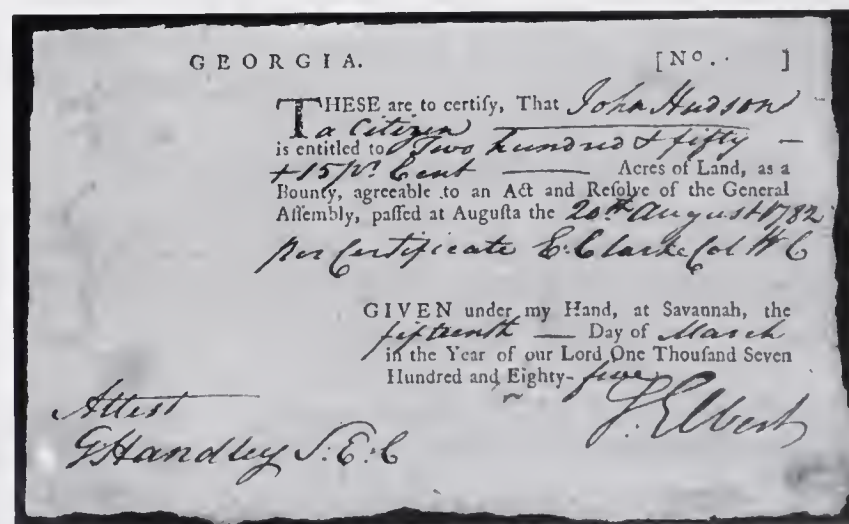 GEORGIA. [No. ]
THESE are to certify, That John Hudson
a Citizen
is entitled to Two hundred & fifty —
+ 15 pr. Cent — Acres of Land, as a
Bounty, agreeable to an Act and Reſolve of the General
Aſſembly, paſſed at Auguſta the 20th August 1782
per Certificate E. Clarke Col W C
GIVEN under my Hand, at Savannah, the
fifteenth — Day of March
in the Year of our Lord One Thouſand Seven
Hundred and Eighty-five
Attest
S. Elbert
G Handley S. E. C